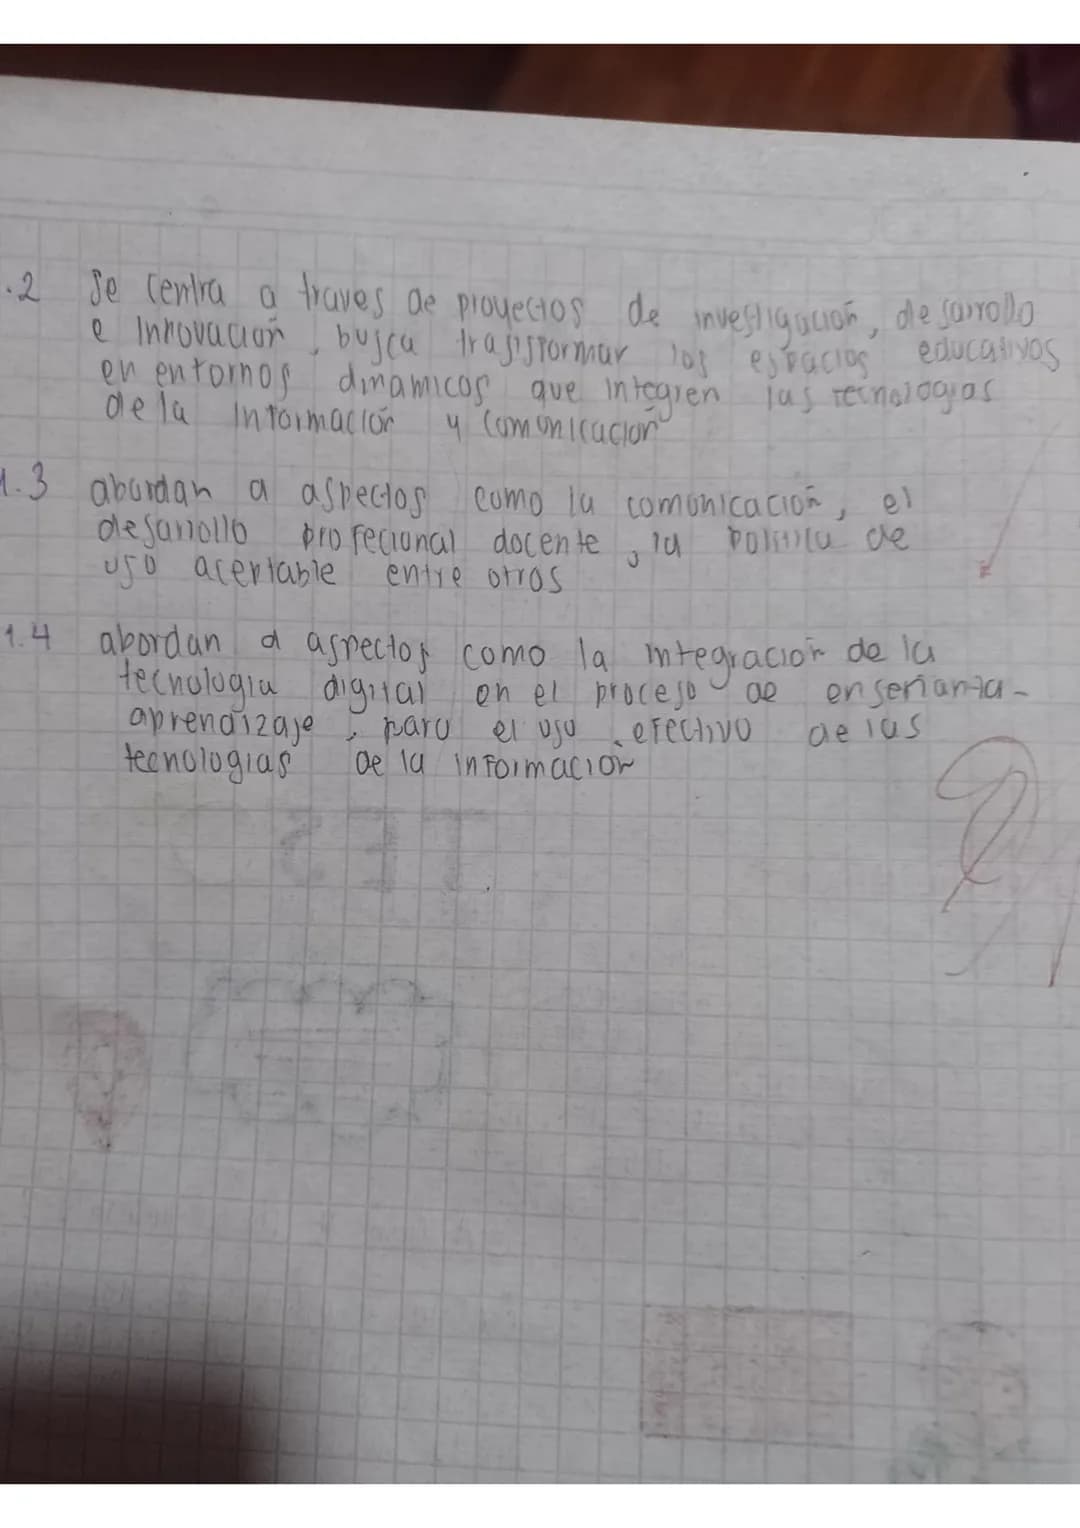 .2 Se centra a traves de proyectos de investigación, desarrollo
e Innovación, busca trasisformar los espacios educativos
en entornos dinamicos que integren las tecnologias
de la Información y comunicación
1.3 abordan a aspectos como la comonicación, el
desarrollo profecional docente, la politica de
uso aceptable entre otros
1.4 abordan a aspectos como la integración de la
tecnologia digital en el proceso de enseñanza-
aprendizaje, para el uso efectivo de las
tecnologias de la información
TES